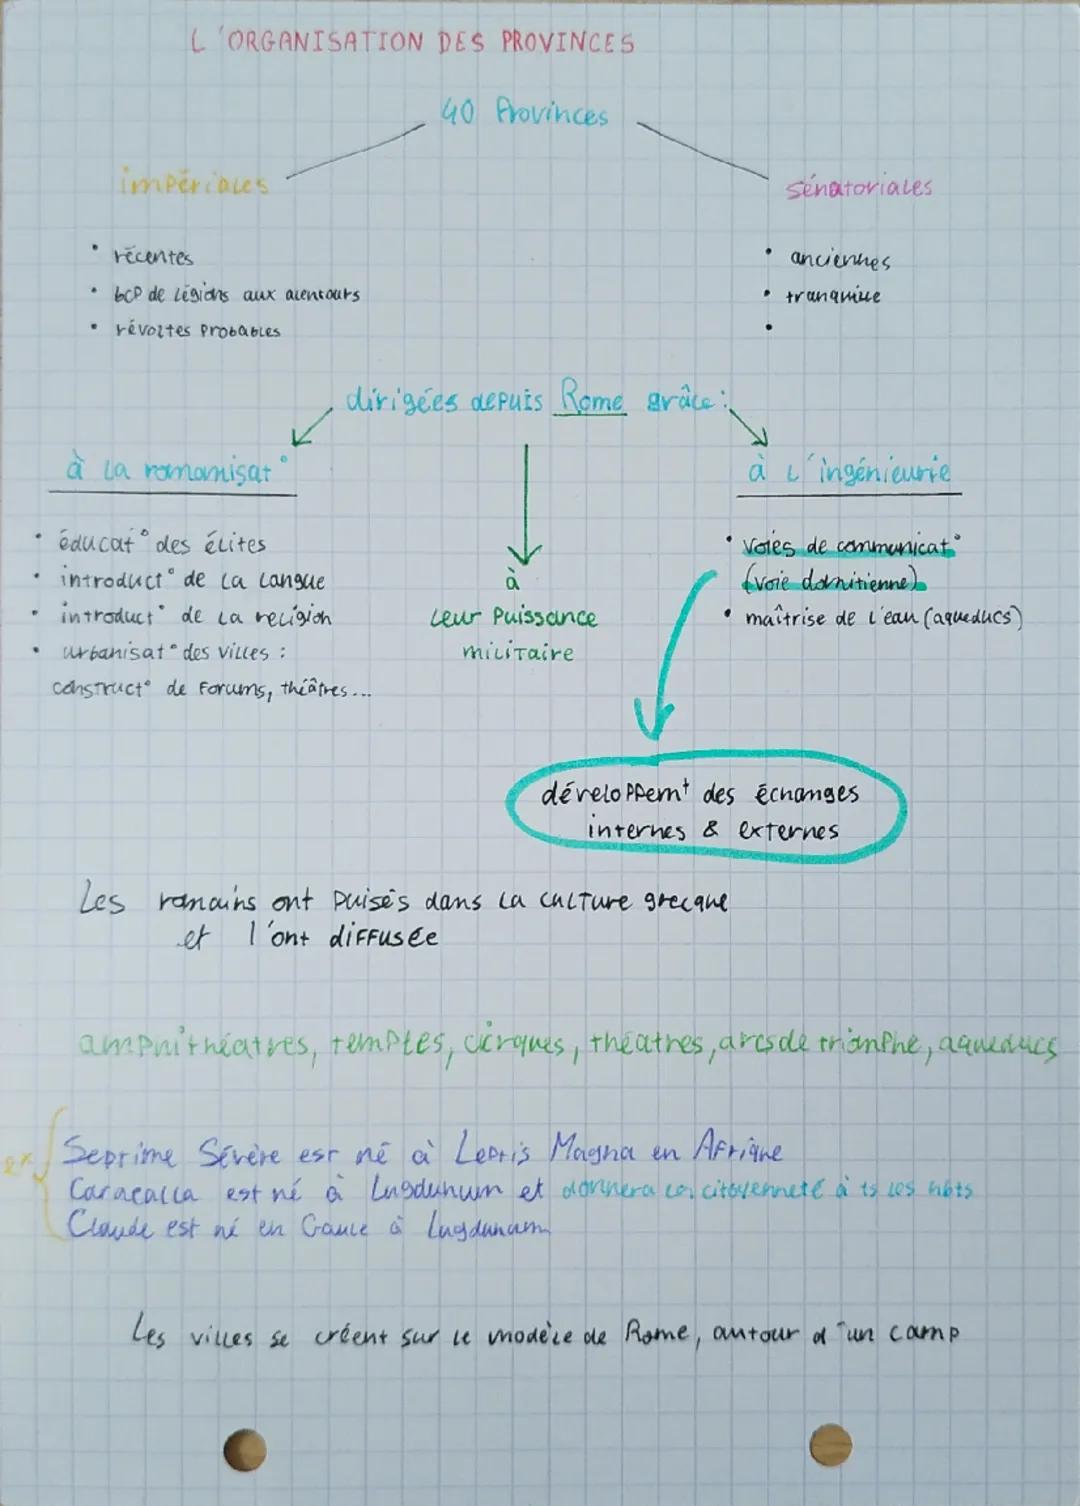 L'ORGANISATION DES PROVINCES
40 Provinces
impériales
sénatoriales
• récentes
• bcp de légions aux alentours
• révoltes probables
• anciennes
• tranquille
•
dirigées depuis Rome grâce :
à la romanisat°
• éducat° des élites
• introduct° de la langue
• introduct° de la religion
• urbanisat° des villes :
construct° de Forums, théâtres...
à
leur Puissance
militaire
à l'ingénieurie
• voies de communicat°
(voie domitienne)
• maîtrise de l'eau (aqueducs)
développemt des échanges
internes & externes
Les romains ont puisés dans la culture grecque
et l'ont diffusée
amphithéatres, temples, cirques, théatres, arcs de triomphe, aqueducs
ex
Septime Sévère est né à Leptis Magna en Afrique
Caracalla est né à Lugdunum et donnera la citoyenneté à ts les hbts
Claude est né en Gaule à Lugdunum
Les villes se créent sur le modèle de Rome, autour d'un camp